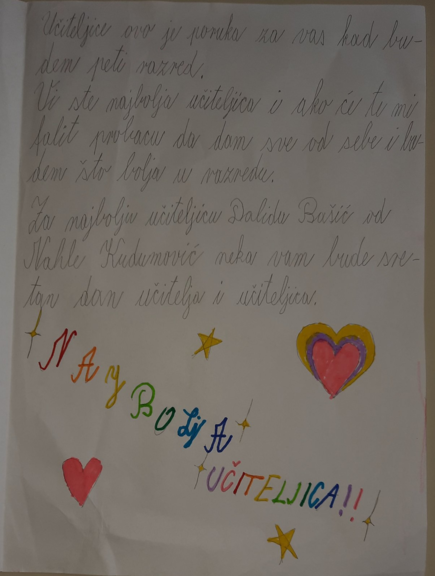 Učiteljice ovo je poruka za vas kad bu-
dem peti razred.
Vi ste najbolja učiteljica i ako će te mi
falit probacu da dam sve od sebe i bu-
dem što bolja u razredu.
Za najbolju učiteljicu Dalidu Bašić od
Nahle Kudumović neka vam bude sre-
tan dan učitelja i učiteljica.
NAY BOLJA
UČITELJICA!!